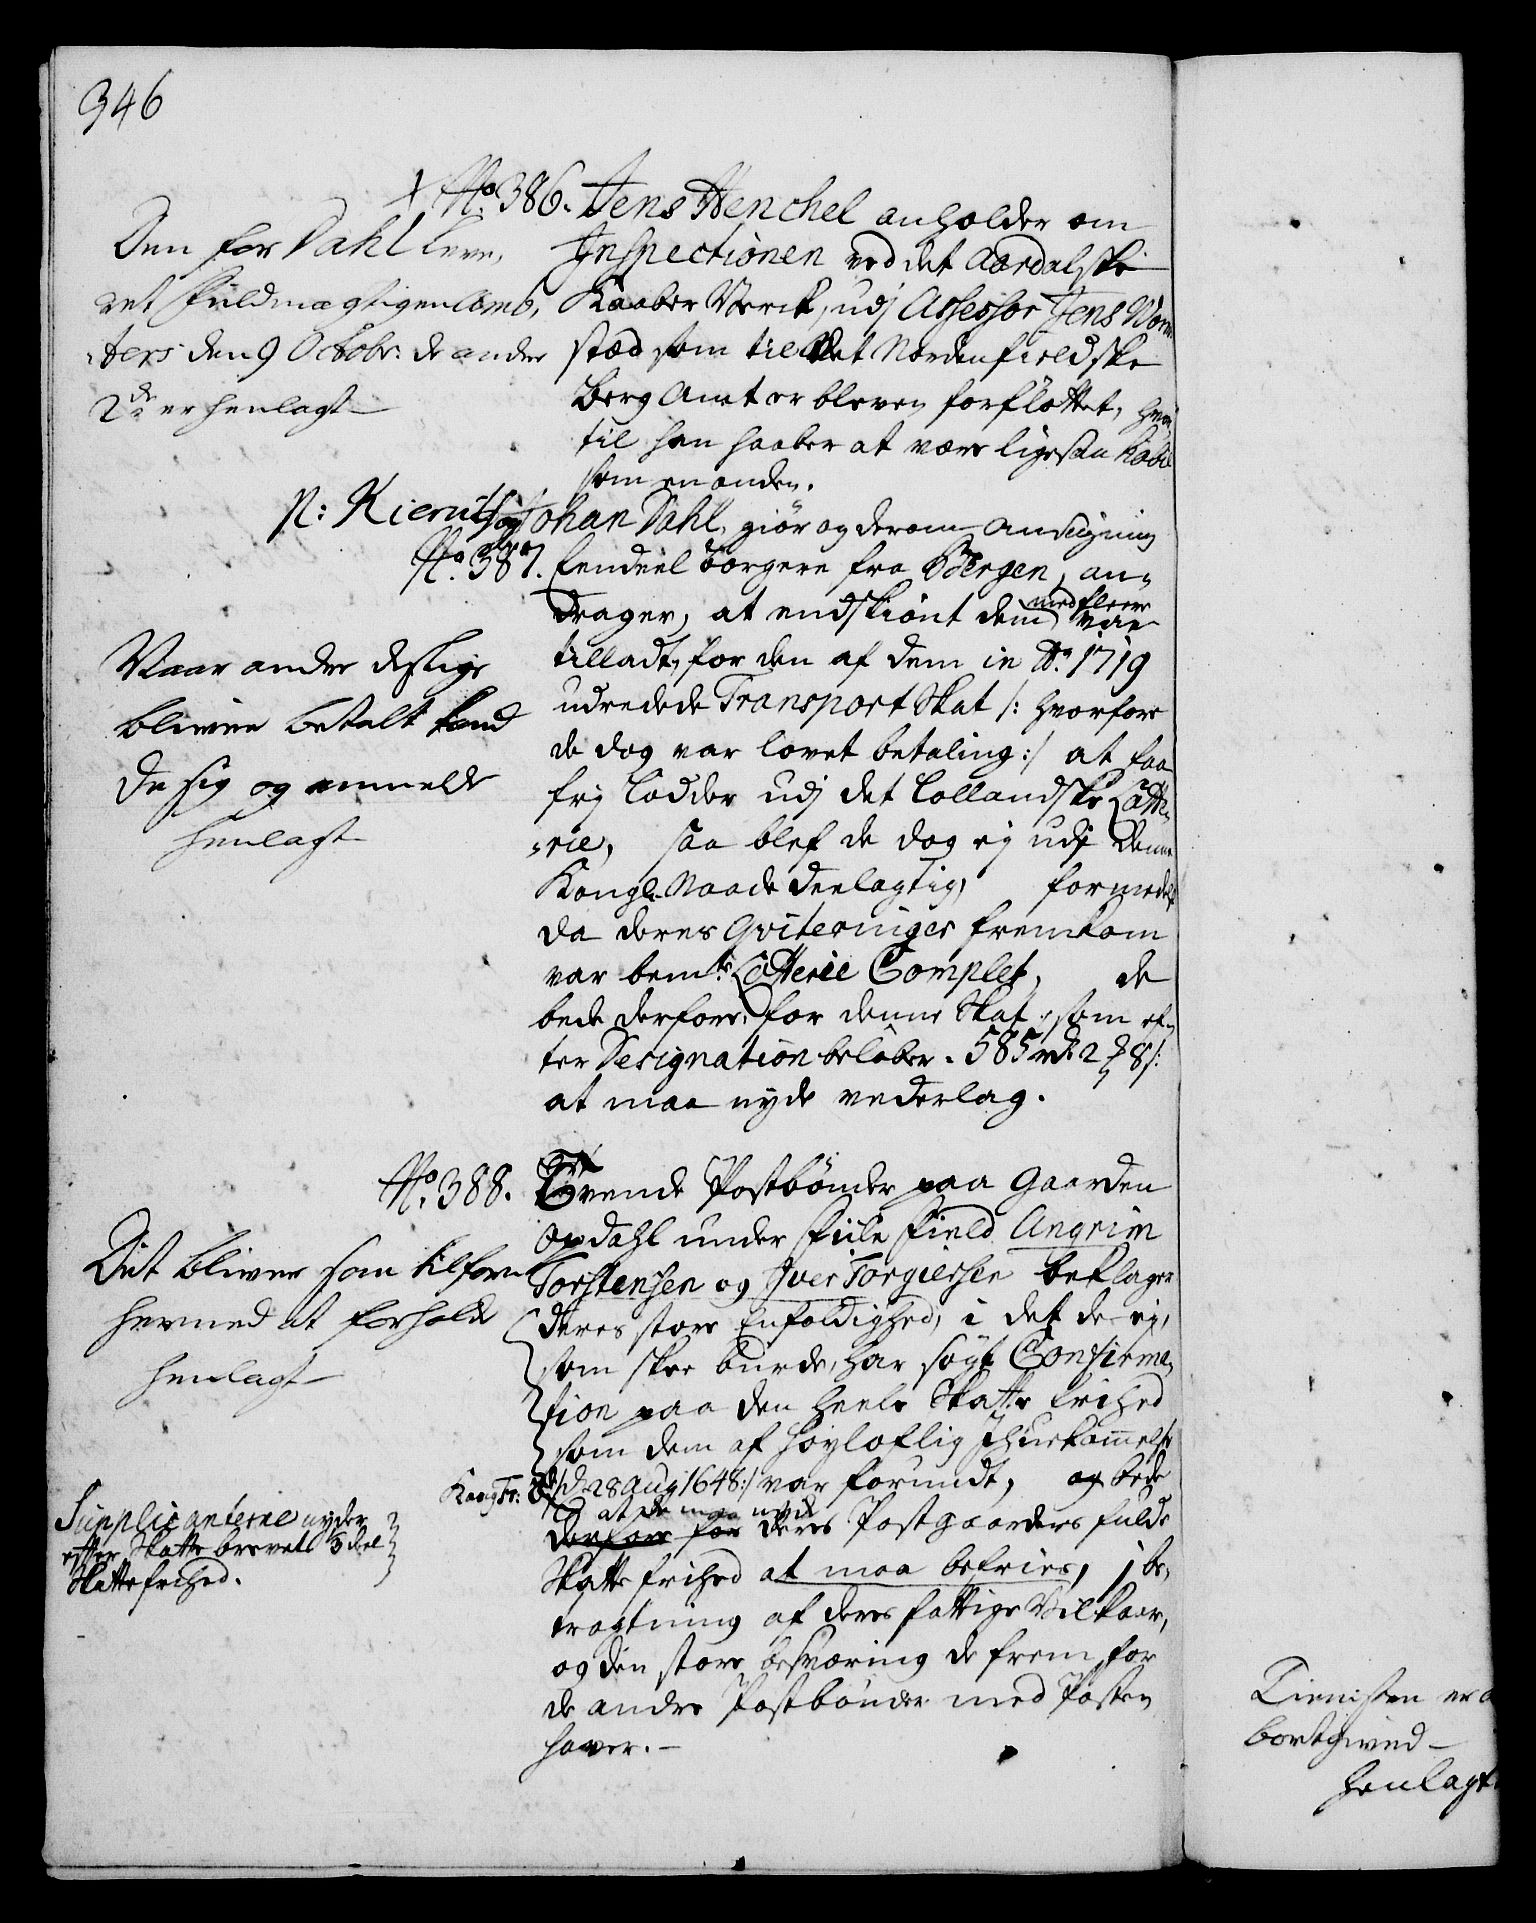 346
No. 386. Jens Henchel anholder om
Inspectionen ved det Aardalske
Kaaber Verck, udj Assessor Jens
stæd som til det Nordenfieldske
Berg Amt er bleven forfløttet, hvor
til han haaber at være ligesaa habil
som en anden.
Den for Dahl leve,
ret fuldmægtigen
den 9 Octobr: de andre
2de er henlagt
N:
og Johan Dahl, giør og derom Ansøgning
No. 387. Eendeel borgere fra Bergen, an-
drager, at endskiønt dem med fleere var
tilladt, for den af dem in Ao. 1719
udredede Transport Skat /: hvorfore
de dog var lovet betaling :/ at faa
frj Lodder udj det Lollandske Lotte-
-rie, saa blef de dog ej udj denne
Kongl. Naade deelagtig, formedelst
da deres Qviteringer fremkom
var bemte. Lotterie Complet, de
bede derfore, for denne Skat, som ef-
ter Designation beløber. 585 rdr 2 ₰ 8 s:
at maa nyde vederlag.
Naar andre deslige
bliver betalt kand
de sig og anmelde
henlagt
No. 388. Tvende Postbønder paa Gaarden
Opdahl under File Field Angrim
Torstensen og Iver Torgiersen beklager
deres store Eenfoldighed, i det de ej,
som skee burde, har søgt Confirma-
tion paa den heele Skatte frihed
som dem af høyloflig Ihukommelse
Kong Fr: 3d /d. 28 Aug 1648:/ var forundt, og bede
at de maa nyde
derfore for deres Postgaarders fulde
Skatte frihed at maa befries, j be-
tragtning af deres fattige Vilkaar,
og den store besværing de frem for
de andre Postbønder med Posten
haver.
Det bliver som tilforn
hermed at forholde
henlagt
Supplicanterne nyder
efter Skatte brevet 3 deel
Skatte frihed.
Tienesten er
bortgived
henlagt